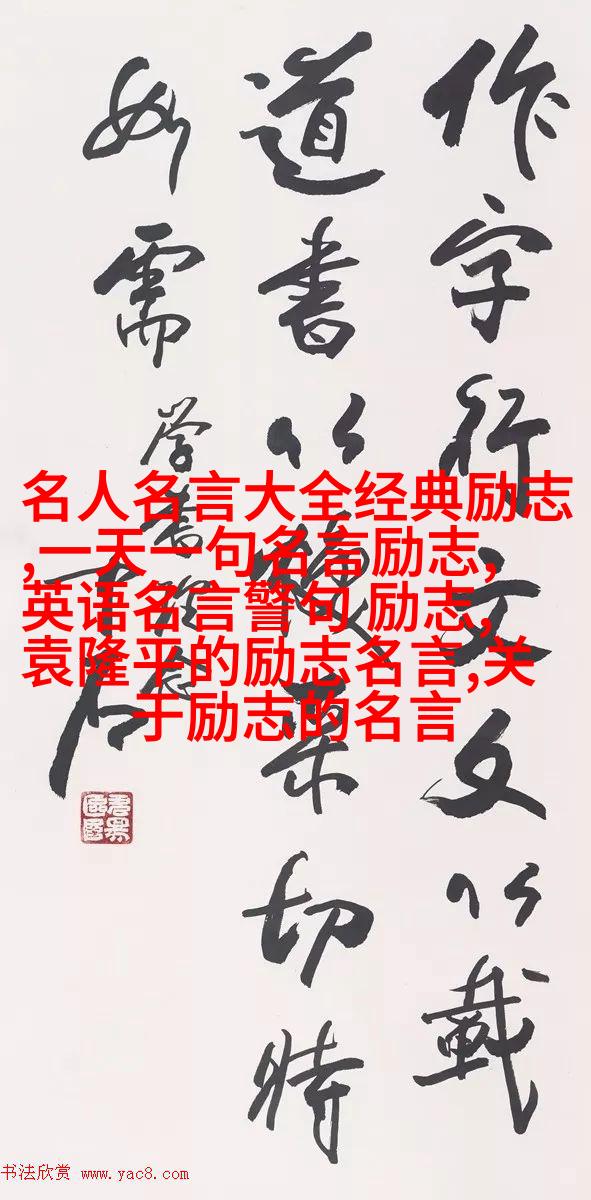 作字行文文以載
道書以焕采切時
如需
学書
名人名言大全经典励志
,一天一句名言励志,
英语名言警句 励志,
袁隆平的励志名言,关
于励志的名言
书法欣赏 www.yac8.com